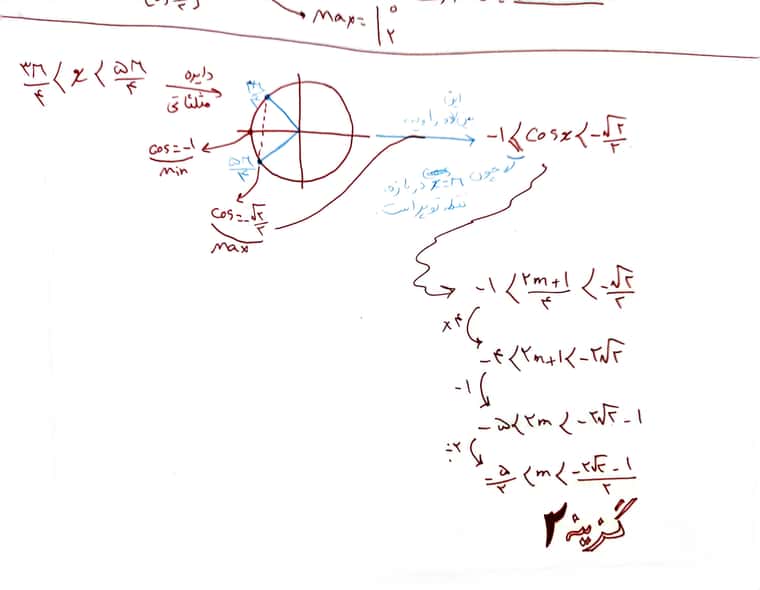 Max = | ۰ ۲
۳π/۴ < x < ۵π/۴
دایره
مثلثاتی
۳π/۴
۵π/۴
cos = -۱
Min
cos = -√۲/۲
Max
این
-۱ ≤ Cosx < -√۲/۲
که چون x=π در بازه،
نقطه توپر است.
-۱ ≤ (۲m+۱)/۴ < -√۲/۲
×۴
-۴ ≤ ۲m+۱ < -۲√۲
-۱
-۵ ≤ ۲m < -۲√۲ - ۱
÷۲
-۵/۲ ≤ m < (-۲√۲ - ۱)/۲
گزینه ۲